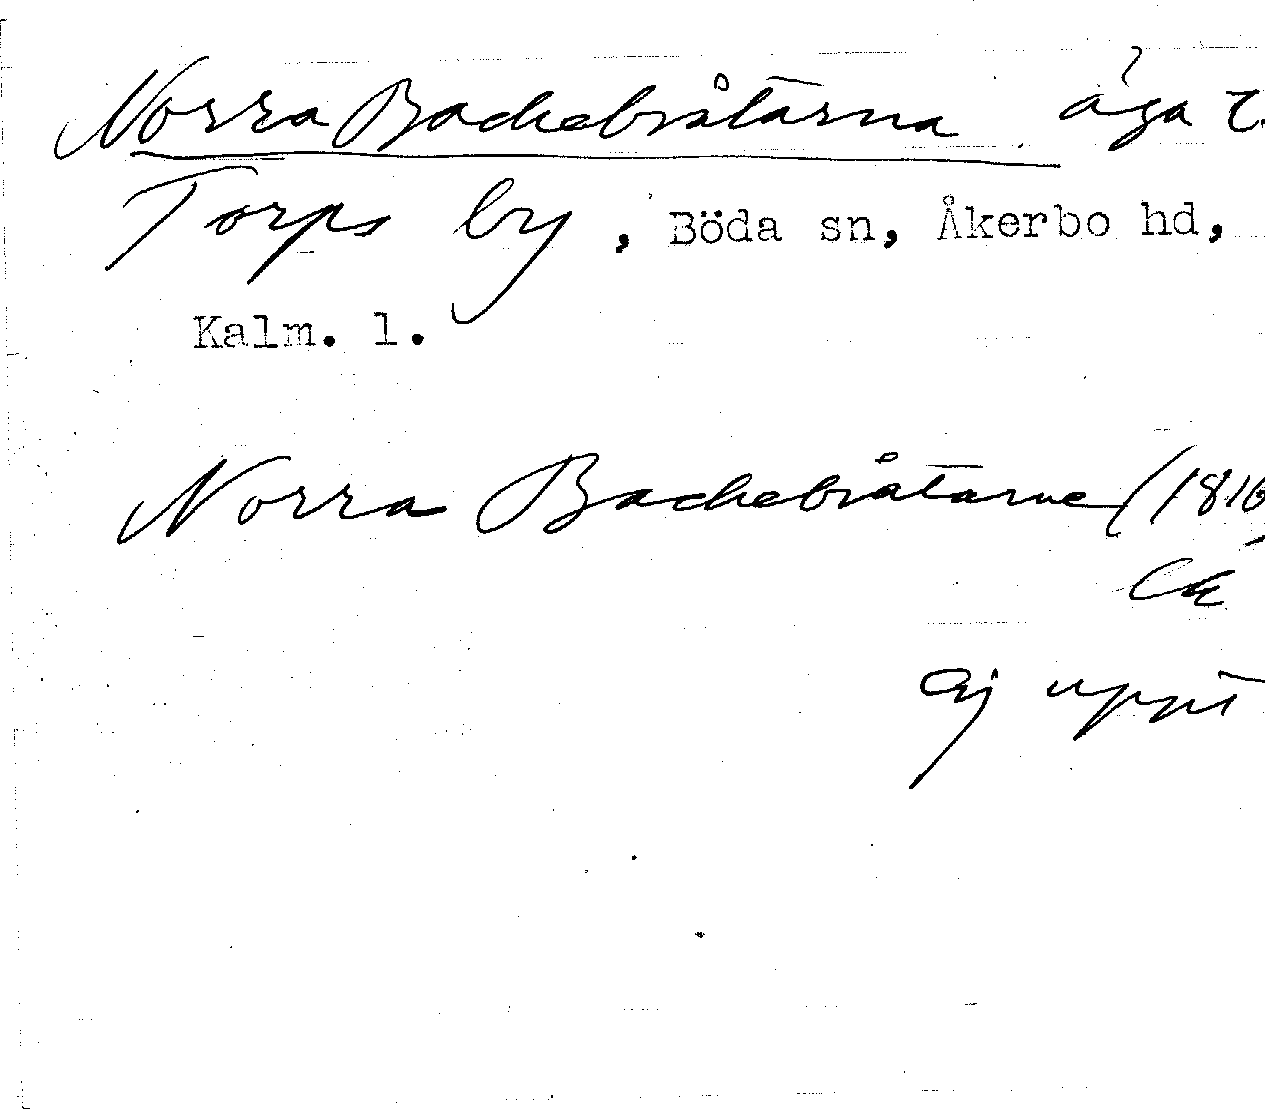 Norra Backebråtarna äga t.
Torps by, Böda sn, Åkerbo hd,
Kalm. l.
Norra Backebråtarne (1816
Ck
ej uppt